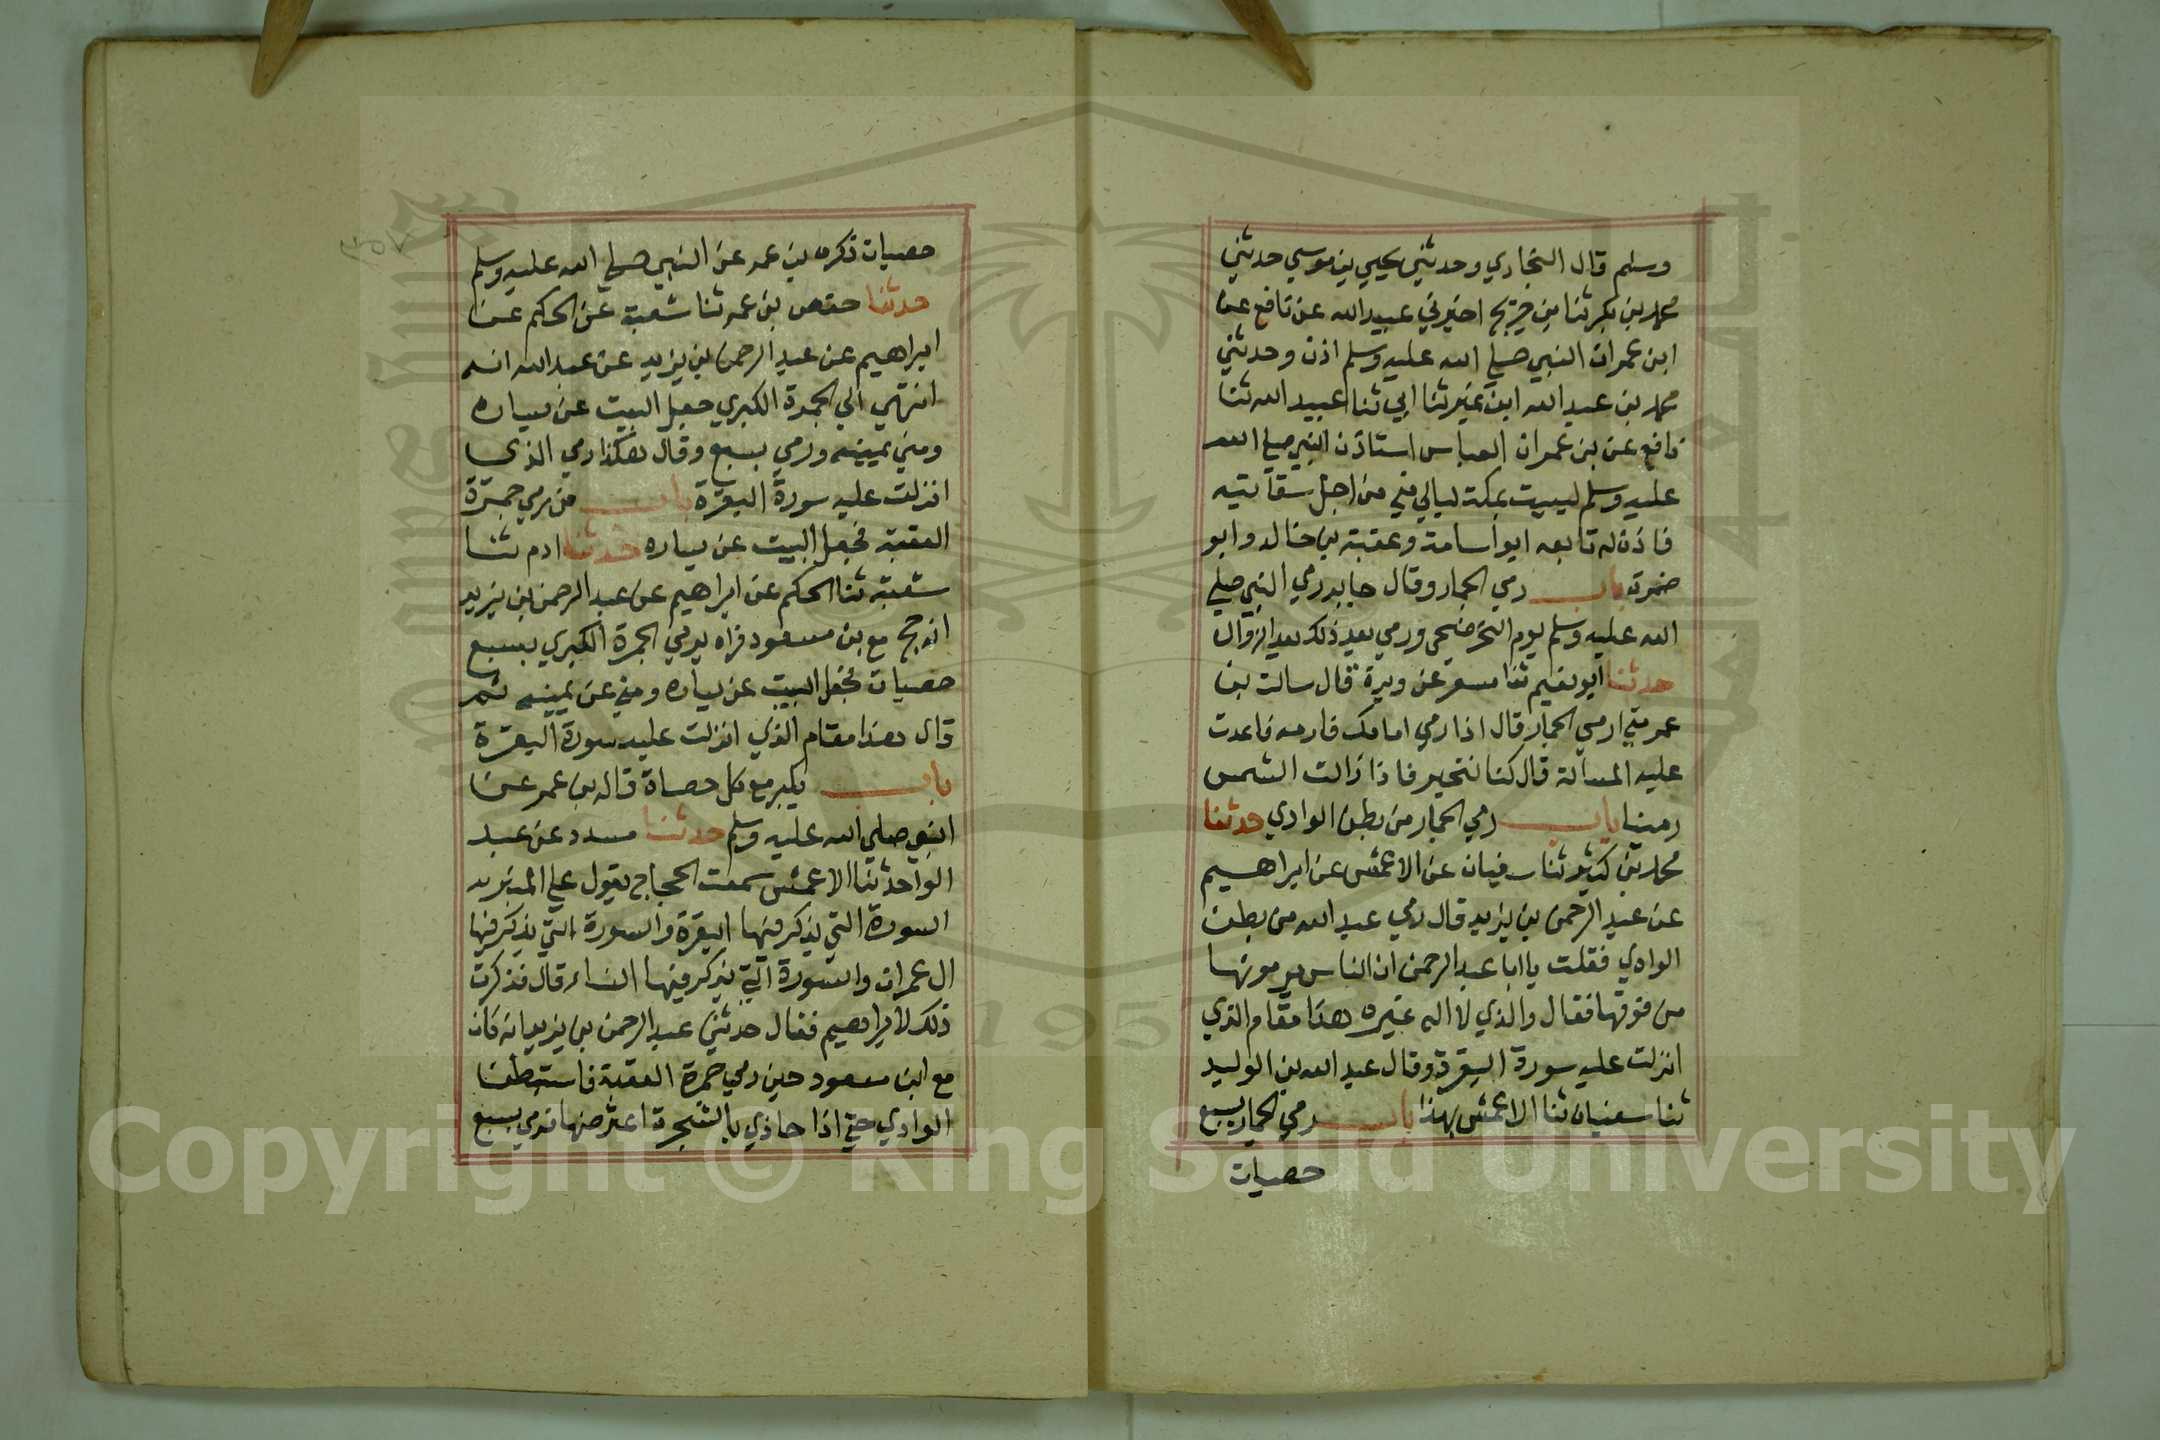 وسلم قال البخاري وحدثني يحيي بن موسي حدثني
محمد بن بكر ثنا بن جريج اخبرني عبيد الله عن نافع عن
ابن عمر ان النبي صلي الله عليه وسلم اذن وحدثني
محمد بن عبد الله ابن نمير ثنا ابي ثنا عبيد الله ثنا
نافع عن بن عمر ان العباس استاذن النبي صلي الله
عليه وسلم ليبيت بمكة ليالي مني من اجل سقايته
فاذن له تابعه ابو اسامة وعقبة بن خالد وابو
ضمرة باب رمي الجمار وقال جابر رمي النبي صلي
الله عليه وسلم يوم النحر ضحي ورمي بعد ذلك بعد الزوال
حدثنا ابو نعيم ثنا مسعر عن وبرة قال سالت بن
عمر متي ارمي الجمار قال اذا رمي امامك فارمه فاعدت
عليه المسالة قال كنا نتحير فاذا زالت الشمس
رمينا باب رمي الجمار من بطن الوادي حدثنا
محمد بن كثير ثنا سفيان عن الاعمش عن ابراهيم
عن عبد الرحمن بن يزيد قال رمي عبد الله من بطن
الوادي فقلت يا ابا عبد الرحمن ان الناس يرمونها
من فوقها فقال والذي لا اله غيره هذا مقام الذي
انزلت عليه سورة البقرة وقال عبد الله بن الوليد
ثنا سفيان ثنا الاعمش بهذا باب رمي الجمار بسبع
حصيات
حصيات ذكره بن عمر عن النبي صلي الله عليه وسلم
حدثنا حفص بن عمر ثنا شعبة عن الحكم عن
ابراهيم عن عبد الرحمن بن يزيد عن عبد الله انه
انتهي الي الجمرة الكبري جعل البيت عن يساره
ومني يمينه ورمي بسبع وقال هكذا رمي الذي
انزلت عليه سورة البقرة باب من رمي جمرة
العقبة فجعل البيت عن يساره حدثنا ادم ثنا
شعبة ثنا الحكم عن ابراهيم عن عبد الرحمن بن يزيد
انه حج مع بن مسعود فراه يرمي الجمرة الكبري بسبع
حصيات فجعل البيت عن يساره ومني عن يمينه ثم
قال هذا مقام الذي انزلت عليه سورة البقرة
باب يكبر مع كل حصاة قاله بن عمر عن
النبي صلي الله عليه وسلم حدثنا مسدد عن عبد
الواحد ثنا الاعمش سمعت الحجاج يقول علي المنبر
السورة التي يذكر فيها البقرة والسورة التي يذكر فيها
ال عمران والسورة التي يذكر فيها النساء قال فذكرت
ذلك لابراهيم فقال حدثني عبد الرحمن بن يزيد انه كان
مع ابن مسعود حين رمي جمرة العقبة فاستبطن
الوادي حتي اذا حاذي بالشجرة اعترضها فرمي بسبع
Copyright © King Saud University
1957